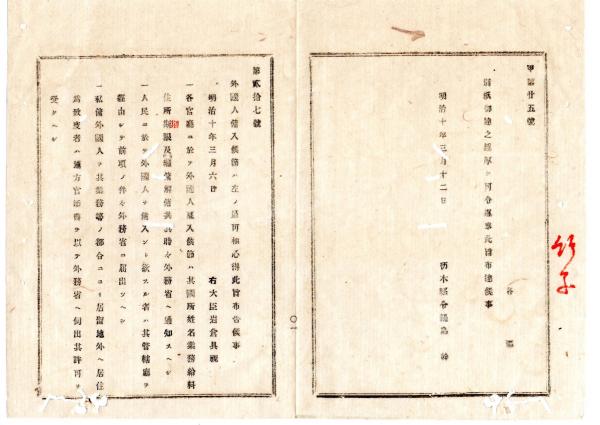 甲第廿五號
別紙御達之趣厚ク可令遵奉此旨布達候事
明治十年三月十二日
栃木縣令鍋島 幹
第貳拾七號
外國人傭入候節ハ左ノ通可相心得此旨布告候事
明治十年三月六日
右大臣岩倉具視
一各官廳ニ於テ外國人雇入候節ハ其國所姓名業務給料
住所期限及繼傭解傭共其時々外務省ヘ通知スヘシ
一人民ニ於テ外國人ヲ傭入ント欲スル者ハ其管轄廳ヲ
經由シテ前項ノ件々外務省ヘ屆出ツヘシ
一私傭外國人ヲ其業務等ノ都合ニヨリ居留地外ヘ居住
爲致度者ハ地方官添書ヲ以テ外務省ヘ伺出其許可ヲ
受クヘシ